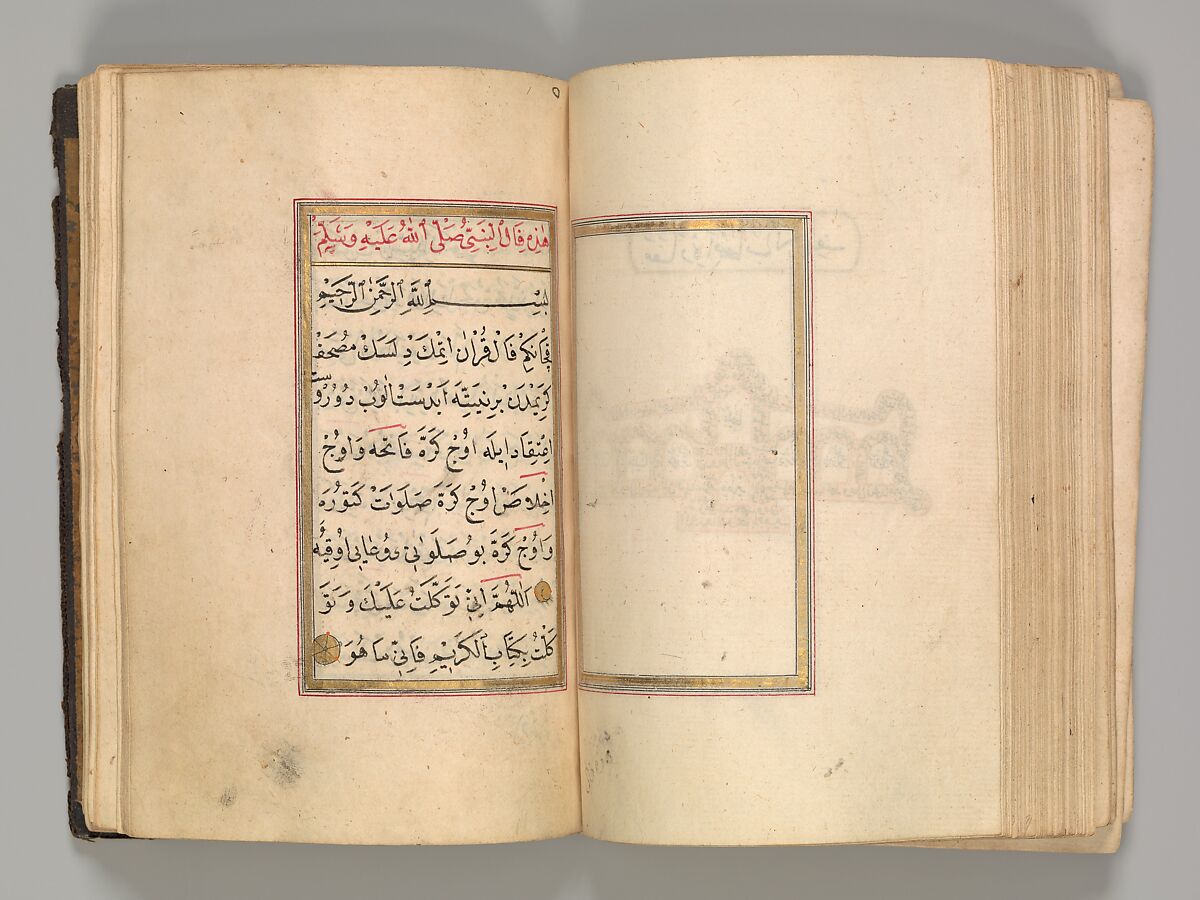 هٰذِهِ فَالُ لِنَبِيّ صَلَّى اللّٰهُ عَلَيْهِ وَسَلَّمَ
بِسْمِ اللّٰهِ الرَّحْمٰنِ الرَّحِيْمِ
قَچَانكِمْ فَالْ قُرْاٰن اتِمْكَ دِلَسَكْ مُصْحَفْ
كَرِيمْدَنْ بِرْنِيَتِّهَ اَبْدَسْتْ اٰلُوبْ دُورُوست
اِعْتِقَاد اِيلَه اوُچْ كَرَّه فَاتحَه وَاوُچْ
اِخْلاصْ اوُچْ كَرَّة صَلَوَاتْ كَتوُرَه
وَاُوچْ كَرَّة بوُ صَلَوَاتِى وُ دُعَايِ اوُقِيَه
اَللّٰهُمَّ اِنِّى تَوَكَّلْتُ عَلَيْكَ وَتَوَ
كَلْتُ بِكِتَابِ الْكَرِيْمِ فَاَنِّى مَا هُوَ